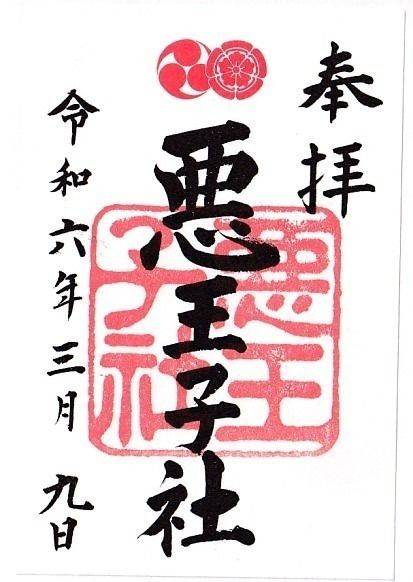 奉拝
悪王子社
悪王子社
令和六年三月九日